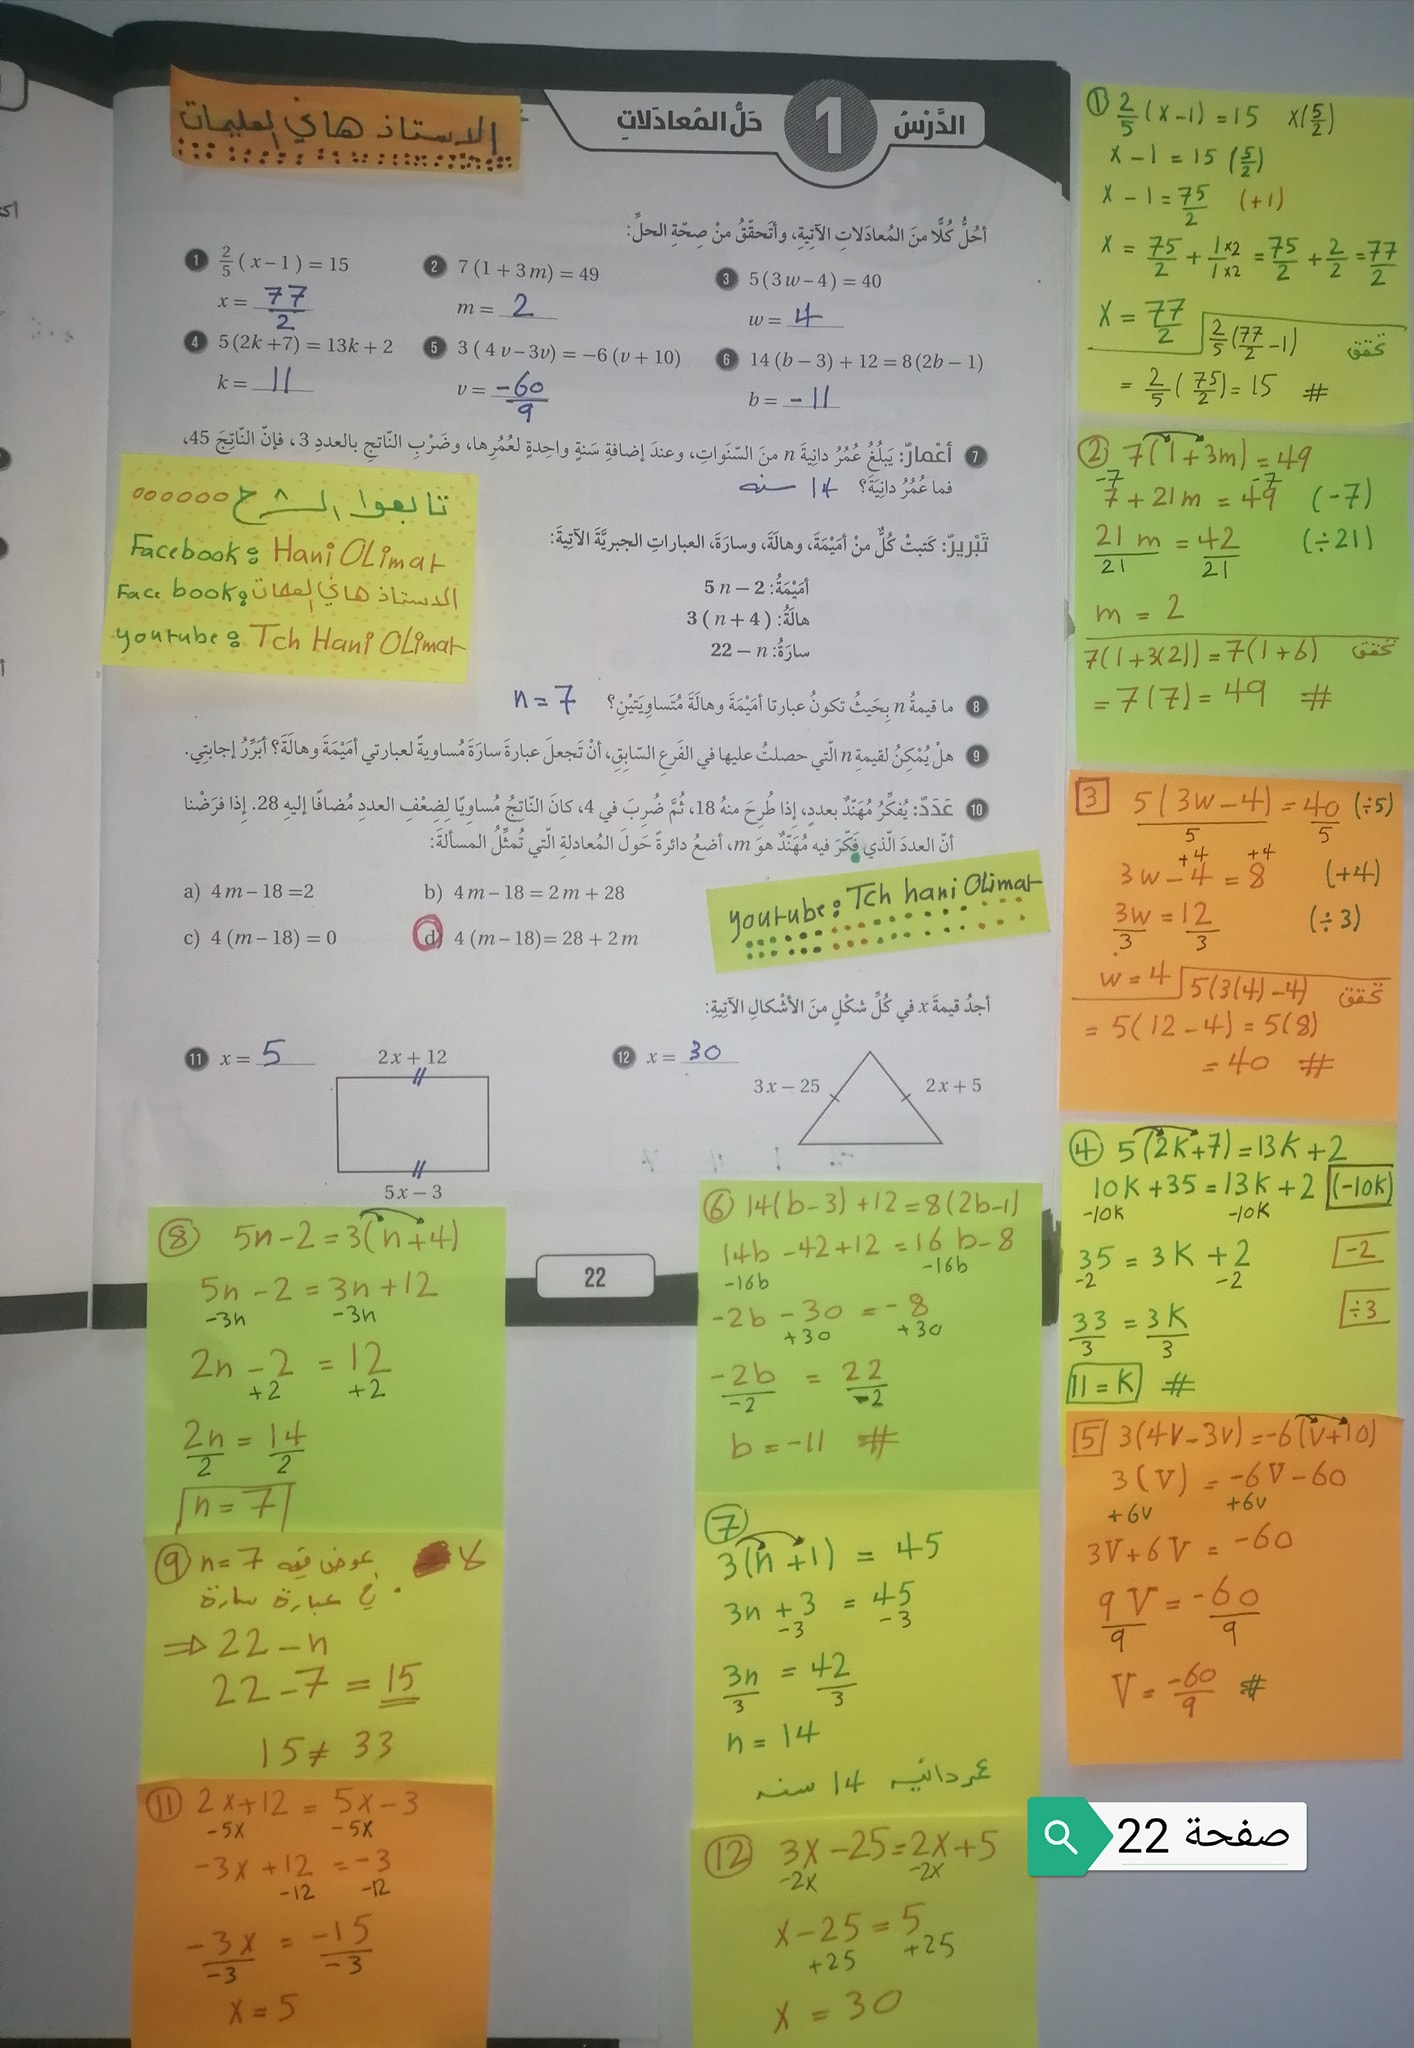 الدَّرْسُ 1 حَلُّ المُعادَلاتِ
الاستاذ هاني العليمات
أحُلُّ كُلًّا منَ المُعادَلاتِ الآتِيةِ، وأتحقّقُ منْ صِحّةِ الحلِّ:
1 2/5 (x – 1) = 15
x = 77/2
2 7(1 + 3m) = 49
m = 2
3 5(3w – 4) = 40
w = 4
4 5(2k +7) = 13k + 2
k = 11
5 3(4v – 3v) = –6(v + 10)
v = -60/9
6 14(b – 3) + 12 = 8(2b – 1)
b = -11
7 أعْمارٌ: يَبلُغُ عُمُرُ دانِيةَ n منَ السّنَواتِ، وعندَ إضافةِ سَنةٍ واحِدةٍ لعُمُرِها، وضَرْبِ النّاتجِ بالعددِ 3، فإنّ النّاتِجَ 45،
فما عُمُرُ دانِيَةَ؟ 14 سنه
تابعوا الشرح
Facebook: Hani OLimat
Face book: الاستاذ هاني العليمات
youtube: Tch Hani OLimat
تَبْريرٌ: كَتبتْ كُلٌّ منْ أمَيْمَةَ، وهالَةَ، وسارَةَ، العباراتِ الجبريَّةَ الآتِيَةَ:
أمَيْمَةُ: 5n – 2
هالَةُ: 3(n + 4)
سارَةُ: 22 – n
8 ما قيمةُ n بِحَيثُ تكونُ عبارتا أمَيْمَةَ وهالَةَ مُتَساوِيَتَيْنِ؟ n = 7
9 هلْ يُمْكِنُ لقيمةِ n الّتي حصلتُ عليها في الفَرعِ السّابِقِ، أنْ تَجعلَ عبارةَ سارَةَ مُساويةً لعبارتي أمَيْمَةَ وهالَةَ؟ أبَرِّرُ إجابتِي.
10 عَدَدٌ: يُفكِّرُ مُهَنّدٌ بعددٍ، إذا طُرِحَ منهُ 18، ثُمَّ ضُرِبَ في 4، كانَ النّاتِجُ مُساوِيًا لِضِعْفِ العددِ مُضافًا إليهِ 28. إذا فرَضْنا
أنّ العددَ الّذي فَكّرَ فيه مُهَنّدٌ هوَ m، أضعُ دائرةً حَولَ المُعادلةِ الّتي تُمثِّلُ المسألةَ:
a) 4m – 18 =2
b) 4m – 18 = 2m + 28
c) 4(m – 18) = 0
d) 4(m – 18)= 28 + 2m
youtube: Tch hani Olimat
أجدُ قيمةَ x في كُلِّ شكْلٍ منَ الأشْكالِ الآتِيةِ:
11 x = 5
2x + 12
5x – 3
12 x = 30
3x – 25
2x + 5
22
① 2/5 (x-1) = 15 x(5/2)
x - 1 = 15 (5/2)
x - 1 = 75/2 (+1)
x = 75/2 + 1x2/1x2 = 75/2 + 2/2 = 77/2
x = 77/2
2/5 (77/2 - 1) تحقق
= 2/5 (75/2) = 15 #
② 7(1+3m) = 49
-7 -7
7 + 21m = 49 (-7)
21m/21 = 42/21 (÷21)
m = 2
7(1+3(2)) = 7(1+6) تحقق
= 7(7) = 49 #
3 5(3w-4)/5 = 40/5 (÷5)
+4 +4
3w - 4 = 8 (+4)
3w/3 = 12/3 (÷3)
w = 4
5(3(4)-4) تحقق
= 5(12-4) = 5(8)
= 40 #
④ 5(2k+7) = 13k+2
10k+35 = 13k+2 (-10k)
-10k -10k
35 = 3k + 2 -2
-2 -2
33/3 = 3k/3 ÷3
11 = k #
5 3(4v-3v) = -6(v+10)
3(v) = -6v-60
+6v +6v
3v+6v = -60
9v/9 = -60/9
v = -60/9 #
⑥ 14(b-3)+12 = 8(2b-1)
14b -42+12 = 16b-8
-16b -16b
-2b - 30 = -8
+30 +30
-2b/-2 = 22/-2
b = -11 #
⑦
3(n+1) = 45
3n + 3 = 45
-3 -3
3n/3 = 42/3
n = 14
عمر دانيه 14 سنه
⑧ 5n-2 = 3(n+4)
5n-2 = 3n+12
-3n -3n
2n - 2 = 12
+2 +2
2n/2 = 14/2
n = 7
⑨ لا عوض قيمه n = 7
في عبارة سارة
⇒ 22-n
22-7 = 15
15 ≠ 33
⑪ 2x+12 = 5x-3
-5x -5x
-3x+12 = -3
-12 -12
-3x/-3 = -15/-3
x = 5
⑫ 3x-25 = 2x+5
-2x -2x
x-25 = 5
+25 +25
x = 30
صفحة 22